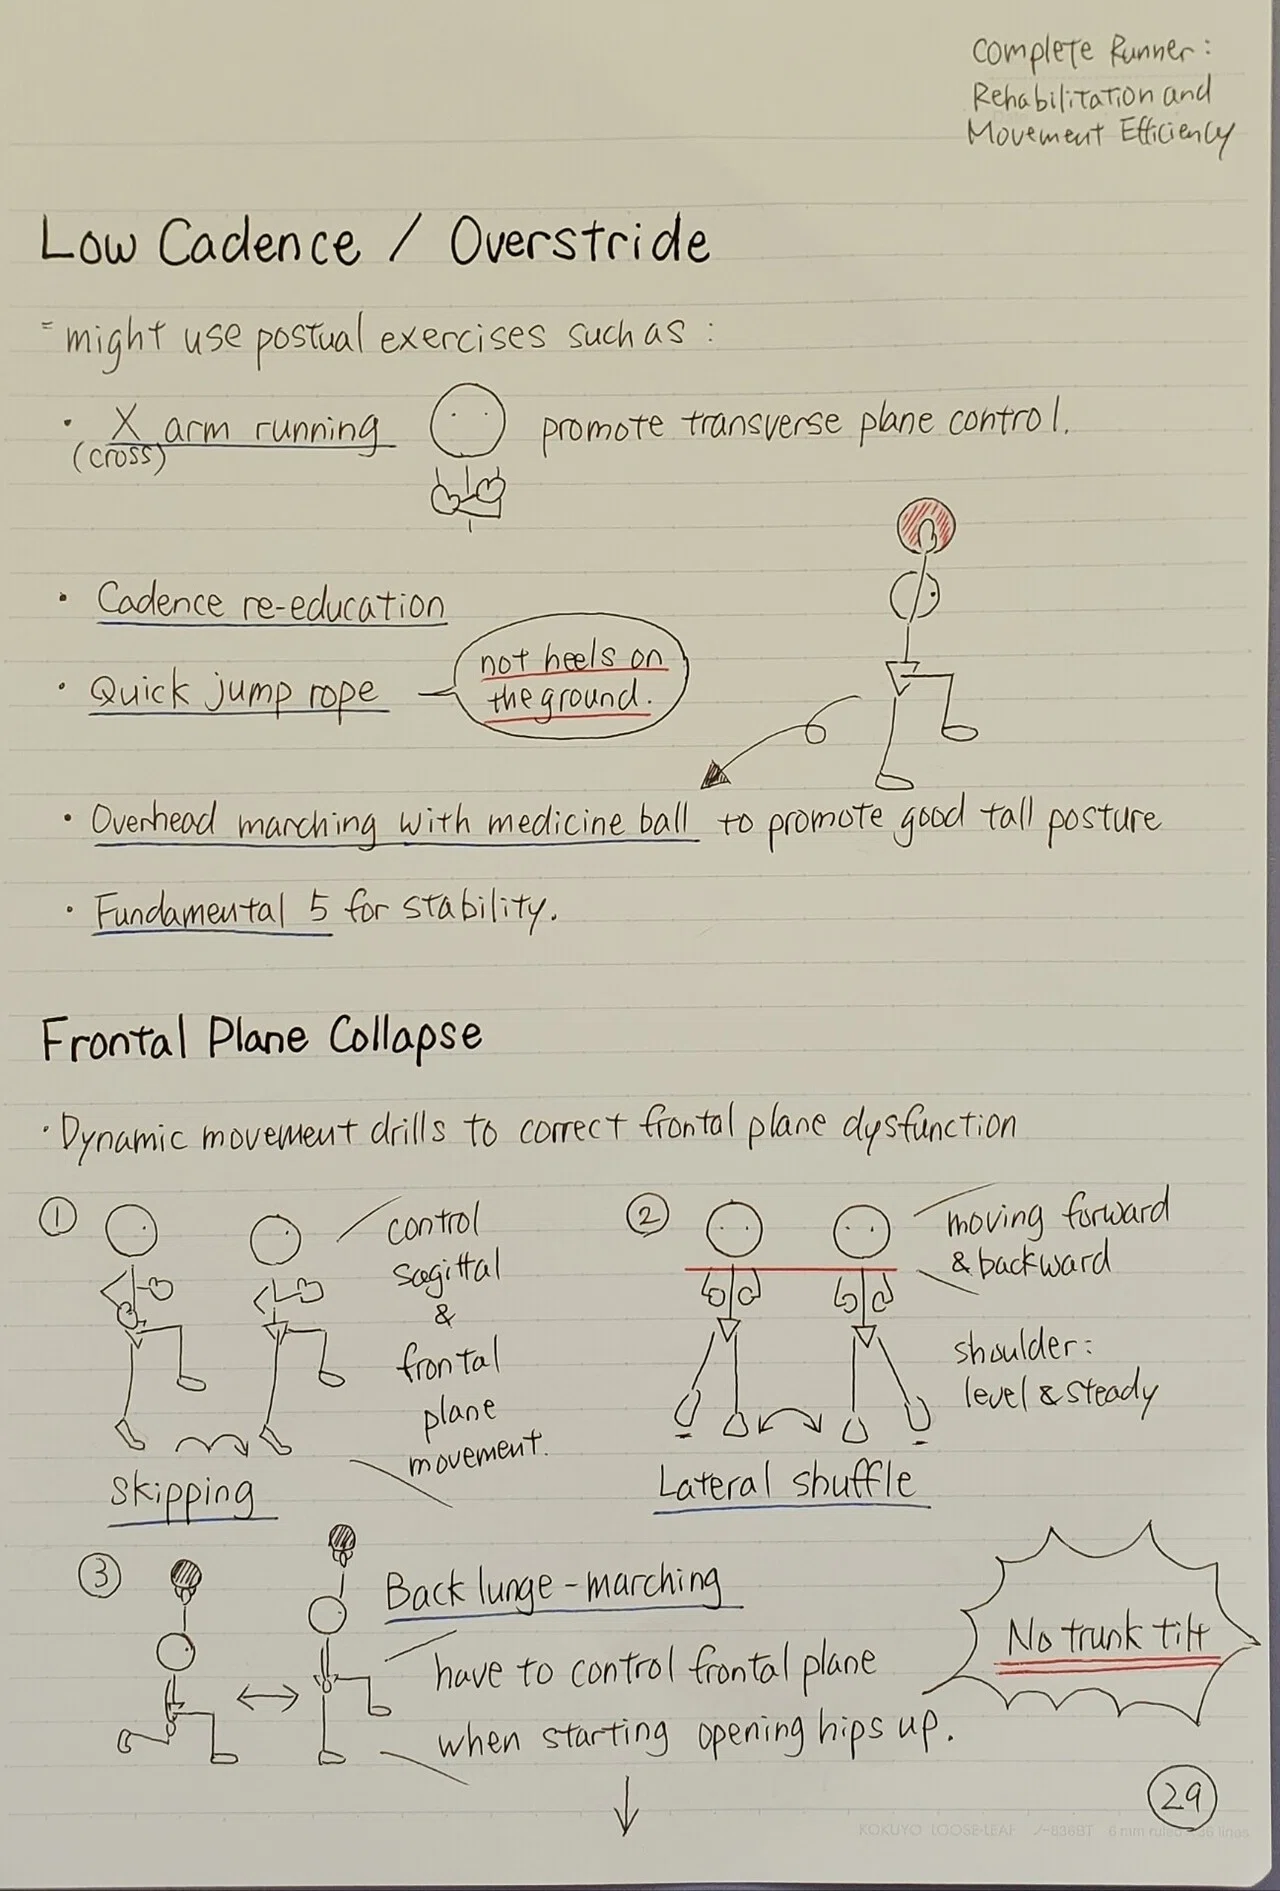 Complete Runner:
Rehabilitation and
Movement Efficiency
Low Cadence / Overstride
= might use postual exercises such as :
· X arm running
(cross)
promote transverse plane control.
· Cadence re-education
· Quick jump rope
not heels on
the ground.
· Overhead marching with medicine ball to promote good tall posture
· Fundamental 5 for stability.
Frontal Plane Collapse
· Dynamic movement drills to correct frontal plane dysfunction
①
control
sagittal
&
frontal
plane
movement.
Skipping
②
moving forward
& backward
shoulder:
level & steady
Lateral shuffle
③
Back lunge - marching
have to control frontal plane
when starting opening hips up.
No trunk tilt
29
KOKUYO LOOSE-LEAF ノ-836BT 6 mm ruled 36 lines